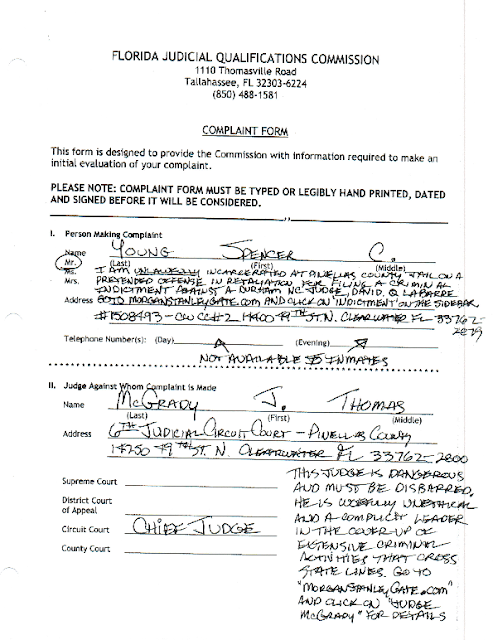 FLORIDA JUDICIAL QUALIFICATIONS COMMISSION
1110 Thomasville Road
Tallahassee, FL 32303-6224
(850) 488-1581
COMPLAINT FORM
This form is designed to provide the Commission with information required to make an
initial evaluation of your complaint.
PLEASE NOTE: COMPLAINT FORM MUST BE TYPED OR LEGIBLY HAND PRINTED, DATED
AND SIGNED BEFORE IT WILL BE CONSIDERED.
I. Person Making Complaint
Name YOUNG SPENCER C.
Mr. (Last) (First) (Middle)
Ms. I AM UNLAWFULLY INCARCERATED AT PINELLAS COUNTY JAIL ON A
Mrs. PRETENDED OFFENSE IN RETALIATION FOR FILING A CRIMINAL
INDICTMENT AGAINST A DURHAM NC JUDGE, DAVID Q LABARRE
Address GO TO MORGANSTANLEYGATE.COM AND CLICK ON 'INDICTMENT' ON THE SIDEBAR
#1508493 - 14400 49TH ST. N. CLEARWATER FL 33762-
2879
Telephone Number(s): (Day) (Evening)
NOT AVAILABLE TO INMATES
II. Judge Against Whom Complaint is Made
Name McGRADY J. THOMAS
(Last) (First) (Middle)
Address 6TH JUDICIAL CIRCUIT COURT - PINELLAS COUNTY
14250 49TH ST. N. CLEARWATER FL 33762-2800
Supreme Court
District Court
of Appeal
Circuit Court CHIEF JUDGE
County Court
THIS JUDGE IS DANGEROUS
AND MUST BE DISBARRED.
HE IS WOEFULLY UNETHICAL
AND A COMPLICIT LEADER
IN THE COVER-UP OF
EXTENSIVE CRIMINAL
ACTIVITIES THAT CROSS
STATE LINES. GO TO
"MORGANSTANLEYGATE.COM"
AND CLICK ON "JUDGE
McGRADY" FOR DETAILS